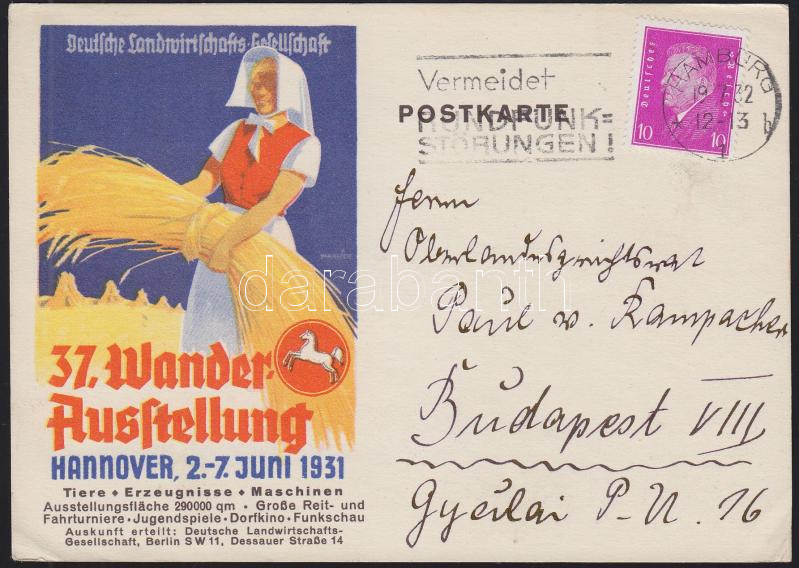 Deutsche Landwirtschafts-Gesellschaft
37. Wander-
Ausstellung
HANNOVER, 2.-7. JUNI 1931
Tiere • Erzeugnisse • Maschinen
Ausstellungsfläche 290000 qm • Große Reit- und
Fahrturniere • Jugendspiele • Dorfkino • Funkschau
Auskunft erteilt: Deutsche Landwirtschafts-
Gesellschaft, Berlin SW 11, Dessauer Straße 14
Vermeidet
POSTKARTE
RUNDFUNK=
STÖRUNGEN!
Deutsches Reich
10 10
HAMBURG
12-13
1
Herrn
Oberlandesgerichtsrat
Paul v.
Budapest VIII
16
darabanth